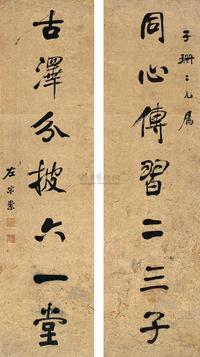 子珊二兄属
同心傳習二三子
古澤分披六一堂
左宗棠